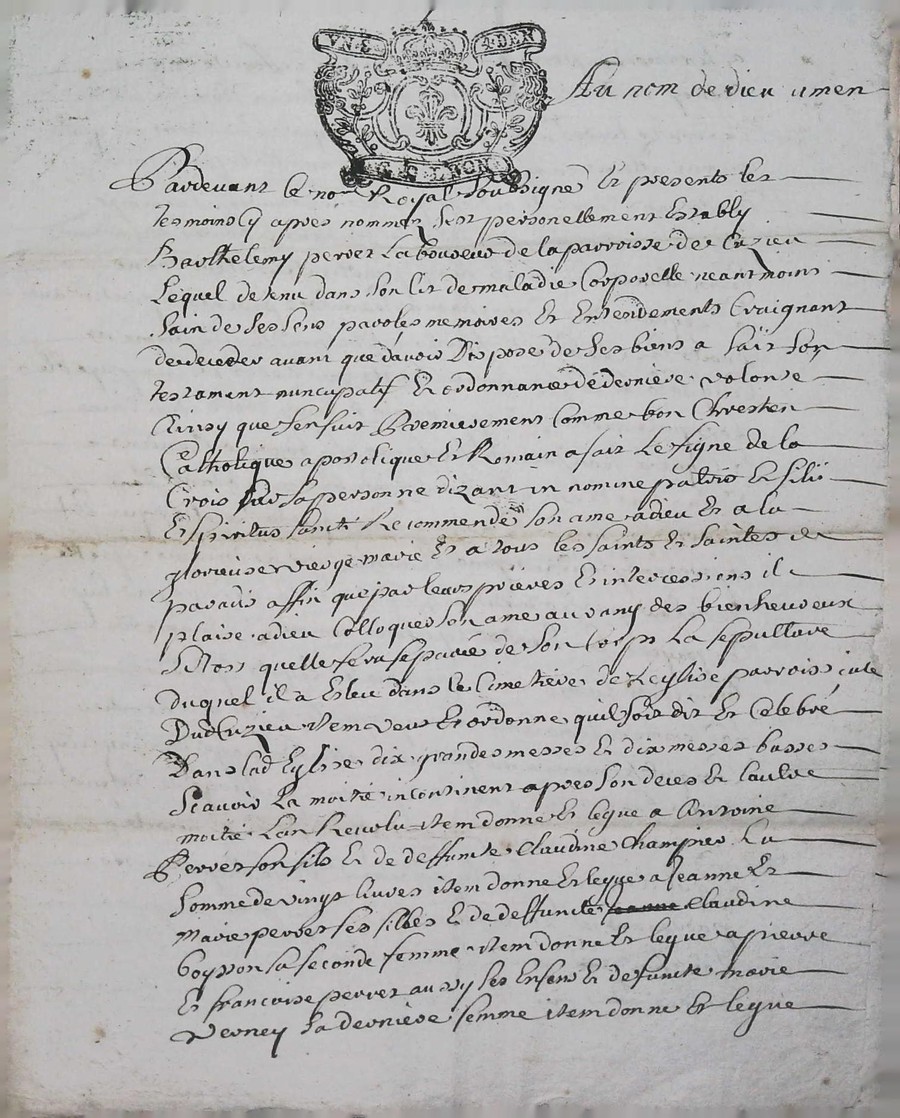 VN S 4 DEN
G. LYON
Au nom de dieu amen
Pardevant le no.re Royal soubsigné Et presents les
tesmoins cy apres nommez sest personellement Estably
Barthelemy perret Laboureur de la parroisse de Cuzieu
Lequel detenu dans son lit de maladie Corporelle neantmoins
sain de ses sens paroles memoires Et Entendements Craignant
de deceder avant que davoir Dispose de ses biens a fait son
testament nuncupatif Et ordonnance de derniere volonte
Ainsy que sensuit Premierement Comme bon Chrestien
Catholique apostolique Et Romain a fait Le signe de la
Croix sur sa personne dizant in nomine patris Et filii
Et spiritus sancti Recommende son ame a dieu Et a la
glorieuse vierge marie Et a tous les saints Et saintes de
paradis affin que par leurs prieres Et intercessions il
plaise a dieu Colloquer son ame au rang des bienheureux
sitost quelle sera separée de son corps La sepulture
duquel il a Esleu dans le Cimetiere de Leglise parroissiale
Dud Cuzieu item veut Et ordonne quil soit dit Et Celebré
Dans lad Eglise dix grandes messes Et dix messes basses
scavoir La moitié incontinent apres son deces Et laultre
moitié Lan Revolu item donne Et legue a Antoine
Perret son fils Et de deffuncte Claudine Champier La
somme de vingt livres item donne Et legue a Jeanne Et
Marie perret ses filles Et de deffuncte Claudine
boysson sa seconde femme item donne Et legue a pierre
Et francoise perret aussy ses Enfens Et de defuncte marie
verney sa derniere femme item donne Et legue